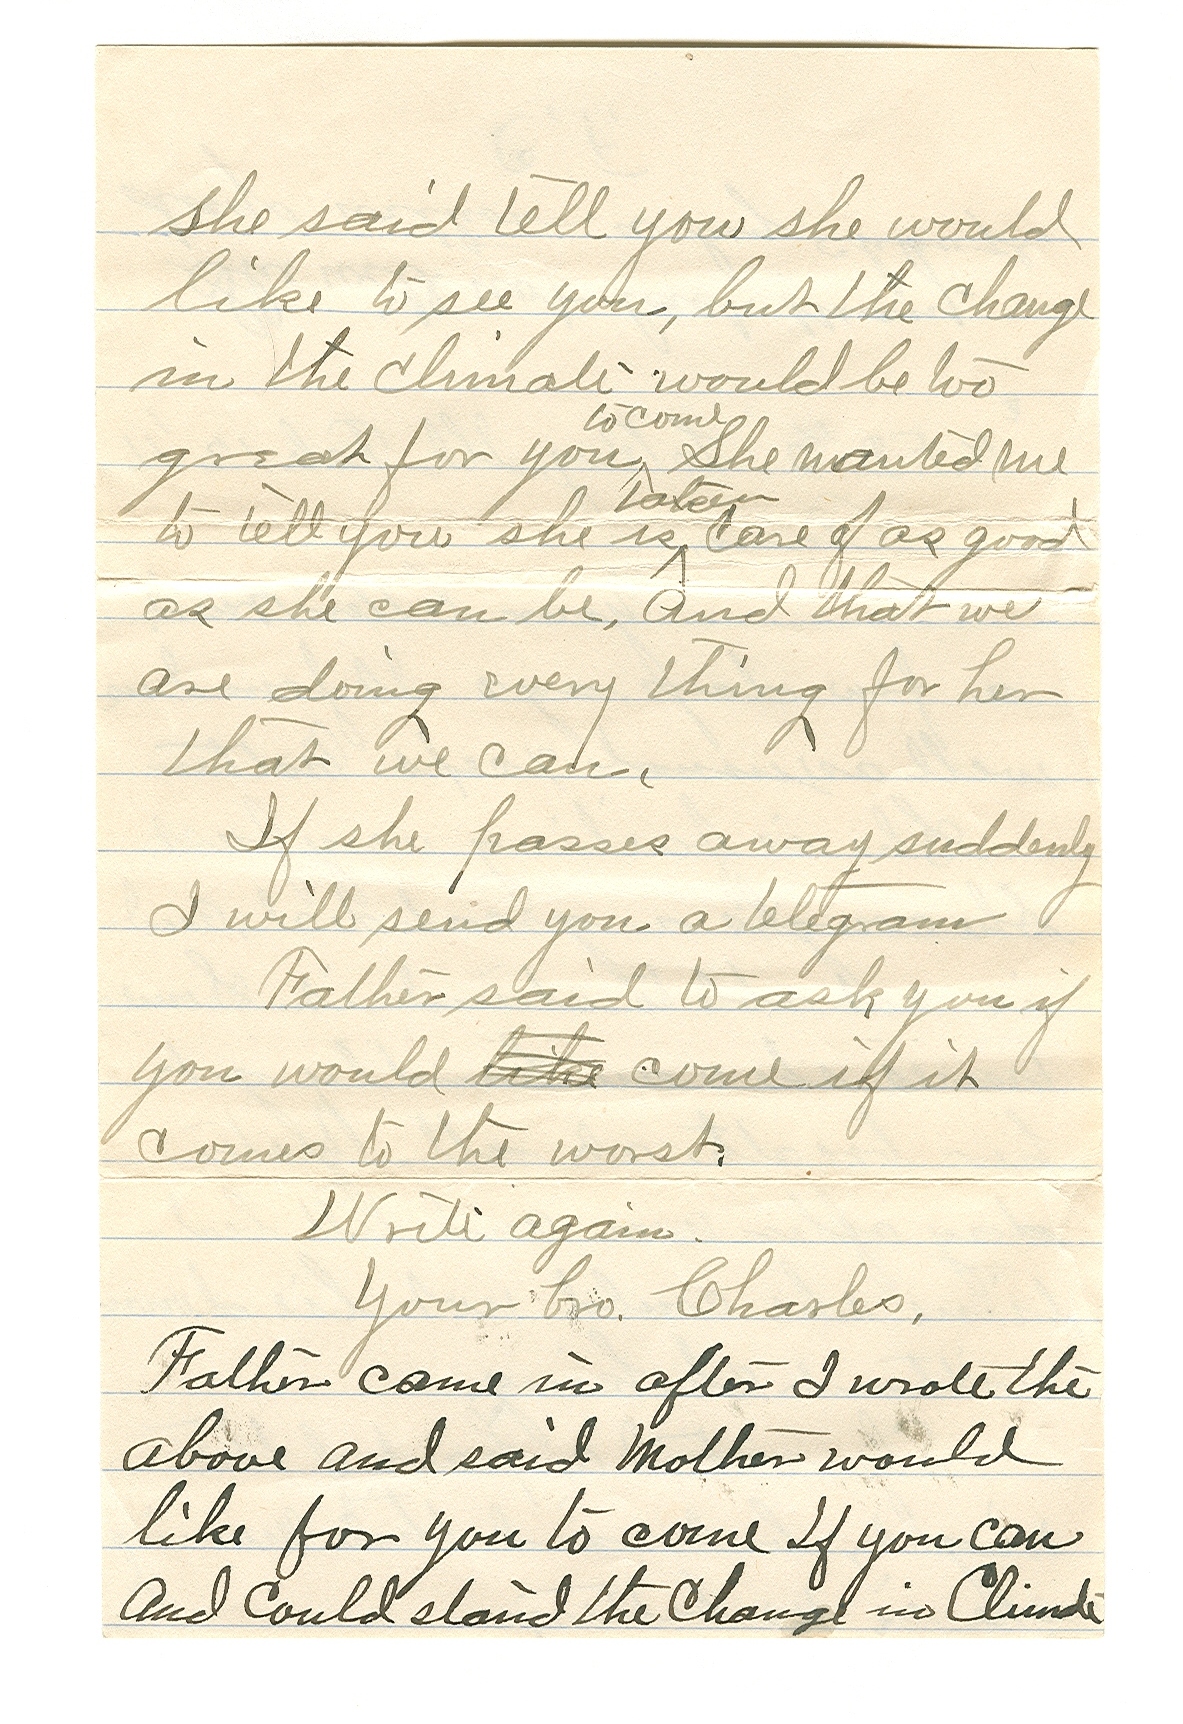 she said tell you she would
like to see you, but the change
in the climate would be too
to come
great for you, She wanted me
taken
to tell you she is care of as good
as she can be, and that we
are doing every thing for her
that we can,
If she passes away suddenly
I will send you a telegram
Father said to ask you if
you would like come if it
comes to the worst.
Write again.
Your bro. Charles,
Father came in after I wrote the
above and said Mother would
like for you to come If you can
And could stand the Change in Climate